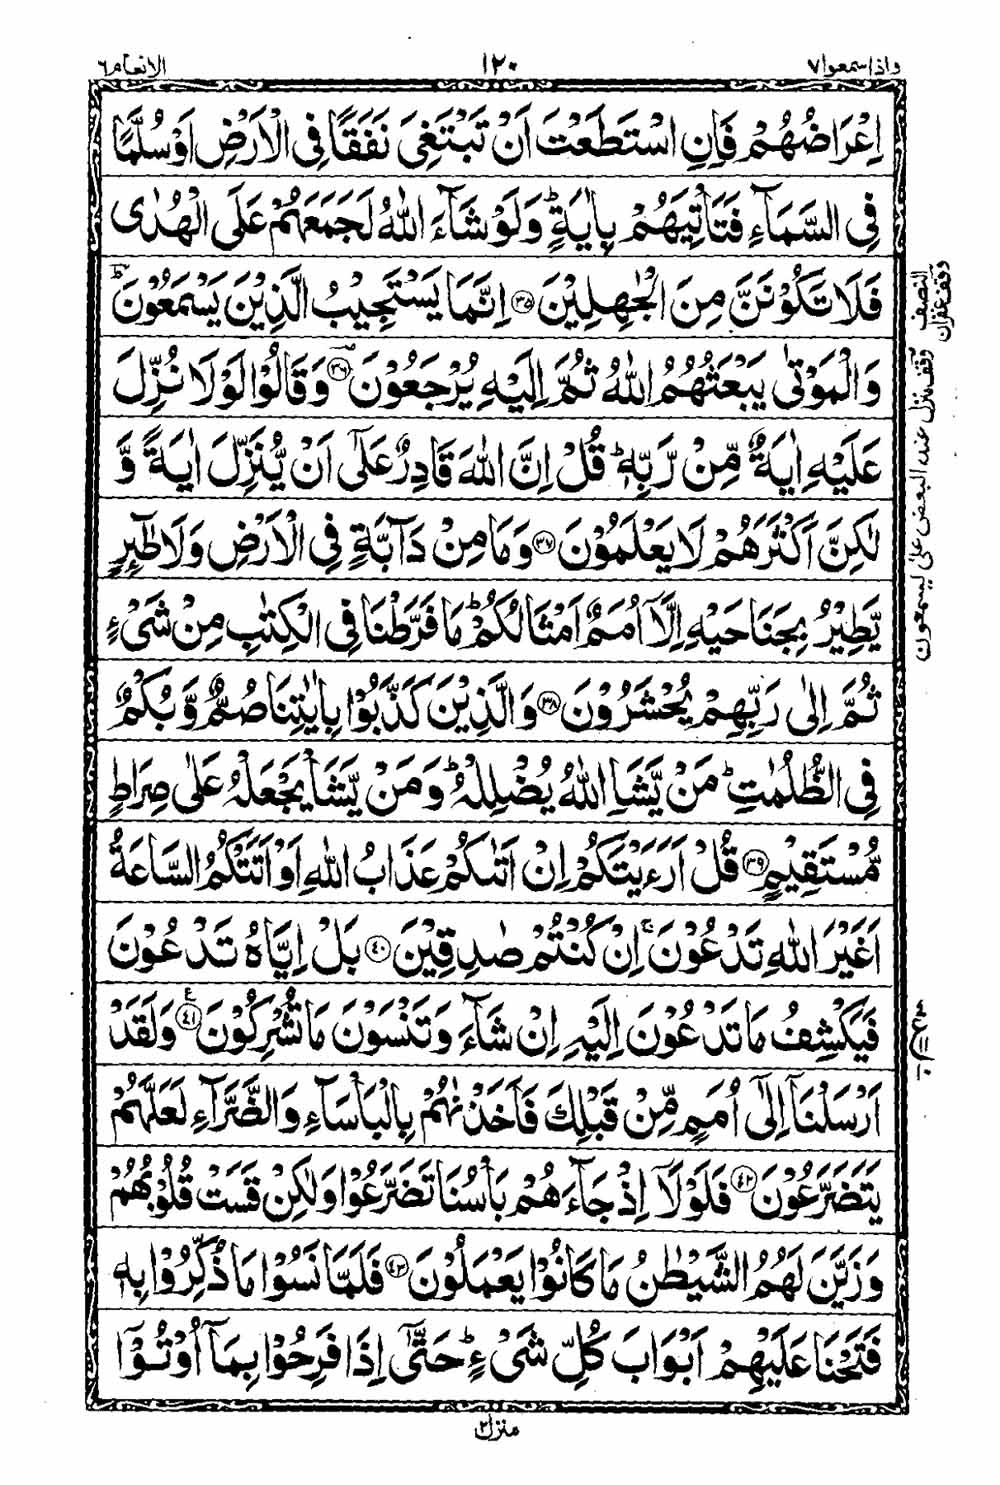 واذا سمعوا ٧
١٢٠
الانعام ٦
اِعْرَاضُهُمْ فَاِنِ اسْتَطَعْتَ اَنْ تَبْتَغِیَ نَفَقًا فِی الْاَرْضِ اَوْ سُلَّمًا
فِی السَّمَآءِ فَتَاْتِیَهُمْ بِاٰیَةٍ ؕ وَلَوْ شَآءَ اللّٰهُ لَجَمَعَهُمْ عَلَی الْهُدٰی
فَلَا تَكُوْنَنَّ مِنَ الْجٰهِلِیْنَ ﴿۳۵﴾ اِنَّمَا یَسْتَجِیْبُ الَّذِیْنَ یَسْمَعُوْنَ ؕ
وَالْمَوْتٰی یَبْعَثُهُمُ اللّٰهُ ثُمَّ اِلَیْهِ یُرْجَعُوْنَ ﴿۳۶﴾ وَقَالُوْا لَوْلَا نُزِّلَ
عَلَیْهِ اٰیَةٌ مِّنْ رَّبِّهٖ ؕ قُلْ اِنَّ اللّٰهَ قَادِرٌ عَلٰۤی اَنْ یُّنَزِّلَ اٰیَةً وَّ
لٰكِنَّ اَكْثَرَهُمْ لَا یَعْلَمُوْنَ ﴿۳۷﴾ وَمَا مِنْ دَآبَّةٍ فِی الْاَرْضِ وَلَا طٰٓئِرٍ
یَّطِیْرُ بِجَنَاحَیْهِ اِلَّاۤ اُمَمٌ اَمْثَالُكُمْ ؕ مَا فَرَّطْنَا فِی الْكِتٰبِ مِنْ شَیْءٍ
ثُمَّ اِلٰی رَبِّهِمْ یُحْشَرُوْنَ ﴿۳۸﴾ وَالَّذِیْنَ كَذَّبُوْا بِاٰیٰتِنَا صُمٌّ وَّبُكْمٌ
فِی الظُّلُمٰتِ ؕ مَنْ یَّشَاِ اللّٰهُ یُضْلِلْهُ ؕ وَمَنْ یَّشَاْ یَجْعَلْهُ عَلٰی صِرَاطٍ
مُّسْتَقِیْمٍ ﴿۳۹﴾ قُلْ اَرَءَیْتَكُمْ اِنْ اَتٰىكُمْ عَذَابُ اللّٰهِ اَوْ اَتَتْكُمُ السَّاعَةُ
اَغَیْرَ اللّٰهِ تَدْعُوْنَ ۚ اِنْ كُنْتُمْ صٰدِقِیْنَ ﴿۴۰﴾ بَلْ اِیَّاهُ تَدْعُوْنَ
فَیَكْشِفُ مَا تَدْعُوْنَ اِلَیْهِ اِنْ شَآءَ وَتَنْسَوْنَ مَا تُشْرِكُوْنَ ﴿۴۱﴾ ع وَلَقَدْ
اَرْسَلْنَاۤ اِلٰۤی اُمَمٍ مِّنْ قَبْلِكَ فَاَخَذْنٰهُمْ بِالْبَاْسَآءِ وَالضَّرَّآءِ لَعَلَّهُمْ
یَتَضَرَّعُوْنَ ﴿۴۲﴾ فَلَوْلَاۤ اِذْ جَآءَهُمْ بَاْسُنَا تَضَرَّعُوْا وَلٰكِنْ قَسَتْ قُلُوْبُهُمْ
وَزَیَّنَ لَهُمُ الشَّیْطٰنُ مَا كَانُوْا یَعْمَلُوْنَ ﴿۴۳﴾ فَلَمَّا نَسُوْا مَا ذُكِّرُوْا بِهٖ
فَتَحْنَا عَلَیْهِمْ اَبْوَابَ كُلِّ شَیْءٍ ؕ حَتّٰۤی اِذَا فَرِحُوْا بِمَاۤ اُوْتُوْۤا
النصف
وقف غفران
وقف منزل عند البعض علی یسمعون
منزل ۲